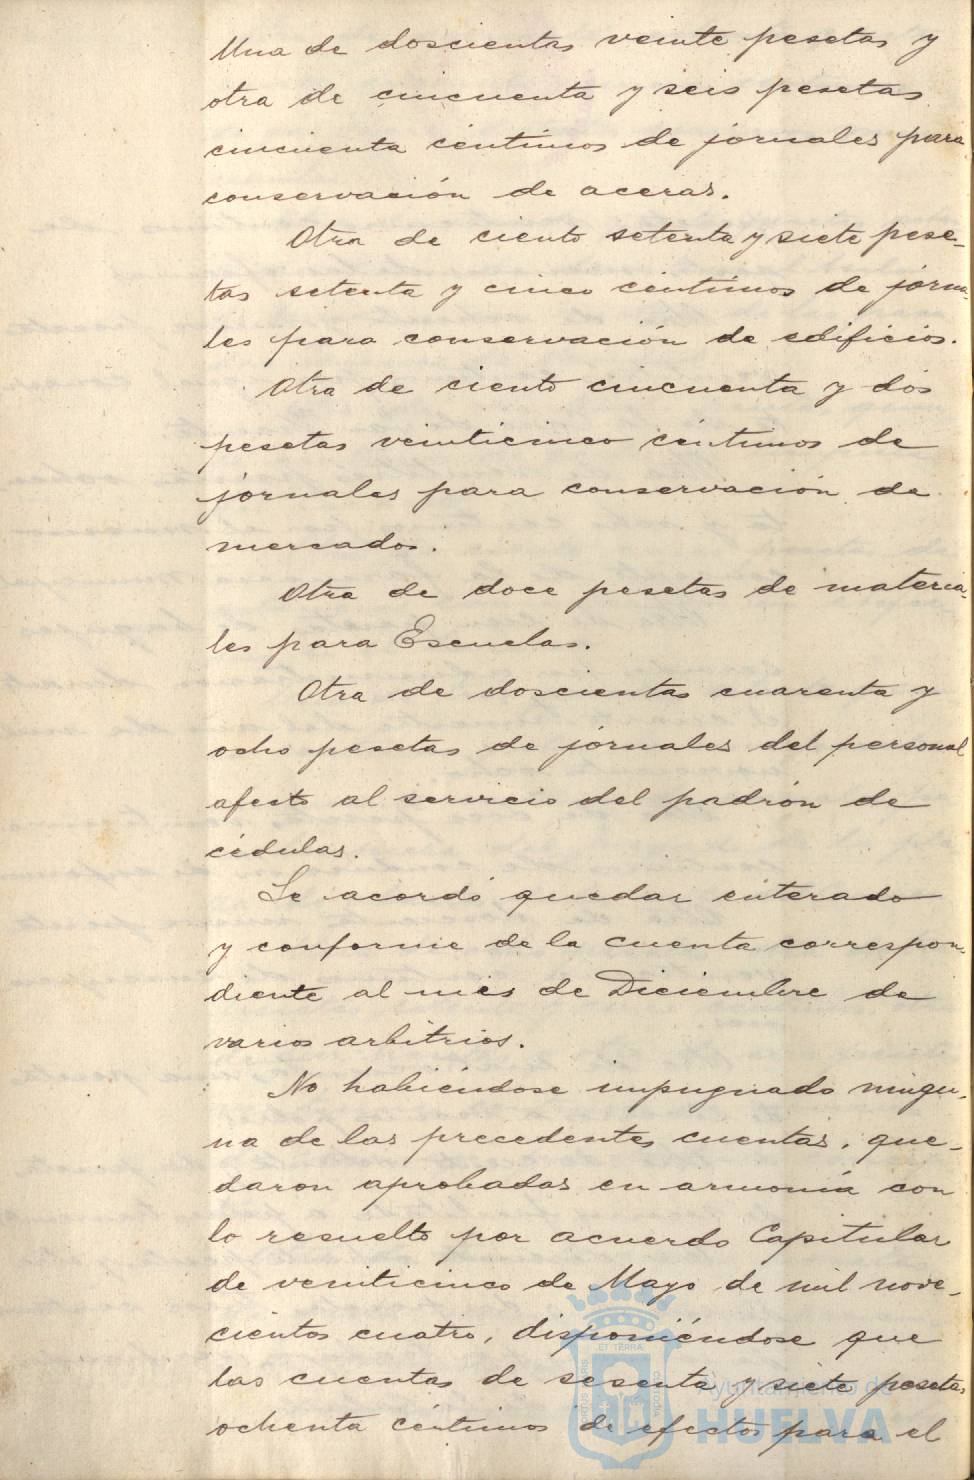 Una de doscientas veinte pesetas y
otra de cincuenta y seis pesetas
cincuenta céntimos de jornales para
conservación de aceras.
Otra de ciento setenta y siete pese-
tas setenta y cinco céntimos de jorna-
les para conservación de edificios.
Otra de ciento cincuenta y dos
pesetas veinticinco céntimos de
jornales para conservación de
mercados.
Otra de doce pesetas de materia-
les para Escuelas.
Otra de doscientas cuarenta y
ocho pesetas de jornales del personal
afecto al servicio del padrón de
cédulas.
Se acordó quedar enterado
y conforme de la cuenta correspon-
diente al mes de Diciembre de
varios arbitrios.
No habiéndose impugnado ningu-
na de las precedentes cuentas, que-
daron aprobadas en armonía con
lo resuelto por acuerdo Capitular
de veinticinco de Mayo de mil nove-
cientos cuatro, disponiéndose que
las cuentas de sesenta y siete pesetas
ochenta céntimos de efectos para el
ET TERRA
Ayuntamiento de
HUELVA